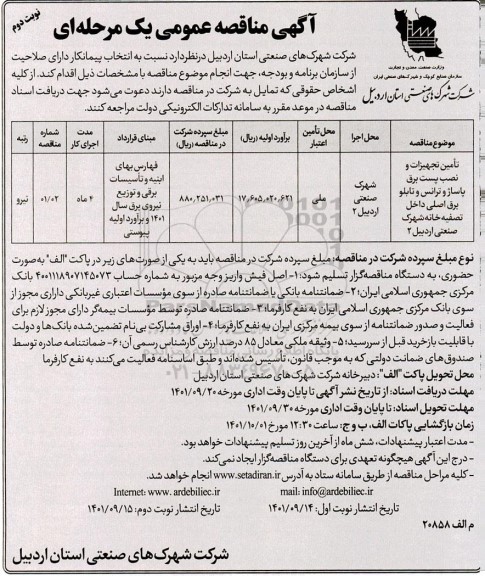 نوبت دوم
آگهی مناقصه عمومی یک مرحله‌ای
وزارت صنعت، معدن و تجارت
سازمان صنایع کوچک و شهرکهای صنعتی ایران
شرکت شهرکهای صنعتی استان اردبیل
شرکت شهرک‌های صنعتی استان اردبیل درنظردارد نسبت به انتخاب پیمانکار دارای صلاحیت
از سازمان برنامه و بودجه، جهت انجام موضوع مناقصه با مشخصات ذیل اقدام کند. از کلیه
اشخاص حقوقی که تمایل به شرکت در مناقصه دارند دعوت می‌شود جهت دریافت اسناد
مناقصه در موعد مقرر به سامانه تدارکات الکترونیکی دولت مراجعه کنند.
موضوع مناقصه | محل اجرا | محل تأمین اعتبار | برآورد اولیه (ریال) | مبلغ سپرده شرکت در مناقصه (ریال) | مبنای قرارداد | مدت اجرای کار | شماره مناقصه | رتبه
تأمین تجهیزات و نصب پست برق پاساژ و ترانس و تابلو برق اصلی داخل تصفیه خانه شهرک صنعتی اردبیل ۲ | شهرک صنعتی اردبیل ۲ | ملی | ۱۷,۶۰۵,۰۲۰,۶۲۱ | ۸۸۰,۲۵۱,۰۳۱ | فهارس بهای ابنیه و تأسیسات برقی و توزیع نیروی برق سال ۱۴۰۱ و برآورد اولیه پیوستی | ۴ ماه | ۰۱/۰۲ | نیرو
نوع مبلغ سپرده شرکت در مناقصه: مبلغ سپرده شرکت در مناقصه باید به یکی از صورت‌های زیر در پاکت "الف" به‌صورت
حضوری، به دستگاه مناقصه‌گزار تسلیم شود: ۱- اصل فیش واریز وجه مزبور به شماره حساب ۴۰۰۱۱۱۸۹۰۷۱۴۵۰۷۳ بانک
مرکزی جمهوری اسلامی ایران؛ ۲- ضمانتنامه بانکی یا ضمانتنامه صادره از سوی مؤسسات اعتباری غیربانکی دارای مجوز از
سوی بانک مرکزی جمهوری اسلامی ایران به نفع کارفرما؛ ۳- ضمانتنامه صادره توسط مؤسسات بیمه‌گر دارای مجوز لازم برای
فعالیت و صدور ضمانتنامه از سوی بیمه مرکزی ایران به نفع کارفرما؛ ۴- اوراق مشارکت بی‌نام تضمین‌شده بانک‌ها و دولت
با قابلیت بازخرید قبل از سررسید؛ ۵- وثیقه ملکی معادل ۸۵ درصد ارزش کارشناس رسمی آن؛ ۶- ضمانتنامه صادره توسط
صندوق‌های ضمانت دولتی که به موجب قانون، تأسیس شده‌اند و طبق اساسنامه فعالیت می‌کنند به نفع کارفرما
محل تحویل پاکت "الف": دبیرخانه شرکت شهرک های صنعتی استان اردبیل
مهلت دریافت اسناد: از تاریخ نشر آگهی تا پایان وقت اداری مورخه ۱۴۰۱/۰۹/۲۰
مهلت تحویل اسناد: تا پایان وقت اداری مورخه ۱۴۰۱/۰۹/۳۰
زمان بازگشایی پاکات الف، ب و ج: ساعت ۱۲:۳۰ مورخ ۱۴۰۱/۱۰/۰۱
- مدت اعتبار پیشنهادات، شش ماه از آخرین روز تسلیم پیشنهادات خواهد بود.
- درج این آگهی هیچگونه تعهدی برای دستگاه مناقصه‌گزار ایجاد نمی‌کند.
- کلیه مراحل مناقصه از طریق سامانه ستاد به آدرس www.setadiran.ir انجام خواهد شد.
mail: info@ardebiliec.ir Internet: www. ardebiliec.ir
تاریخ انتشار نوبت اول: ۱۴۰۱/۰۹/۱۴ تاریخ انتشار نوبت دوم: ۱۴۰۱/۰۹/۱۵
م الف ۲۰۸۵۸
شرکت شهرک‌های صنعتی استان اردبیل